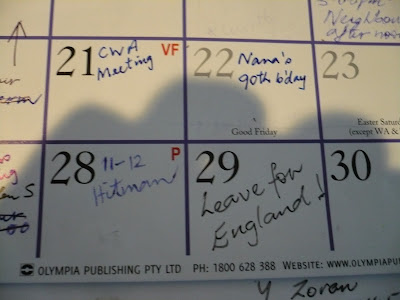 Neighbou
after noo
21 CWA VF
Meeting
22 Nana's
90th b'day
Good Friday
23
Easter Saturd
(except WA &
28 11-12 P
Hitman
29
Leave for
England!
30
OLYMPIA PUBLISHING PTY LTD PH: 1800 628 388 WEBSITE: WWW.OLYMPIAPU
Y Zoran